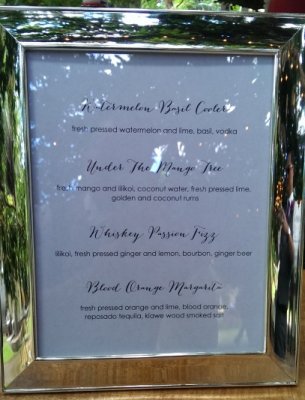 Watermelon Basil Cooler
fresh pressed watermelon and lime, basil, vodka
Under The Mango Tree
fresh mango and lilikoi, coconut water, fresh pressed lime,
golden and coconut rums
Whiskey Passion Fizz
lilikoi, fresh pressed ginger and lemon, bourbon, ginger beer
Blood Orange Margarita
fresh pressed orange and lime, blood orange,
reposado tequila, kiawe wood smoked salt